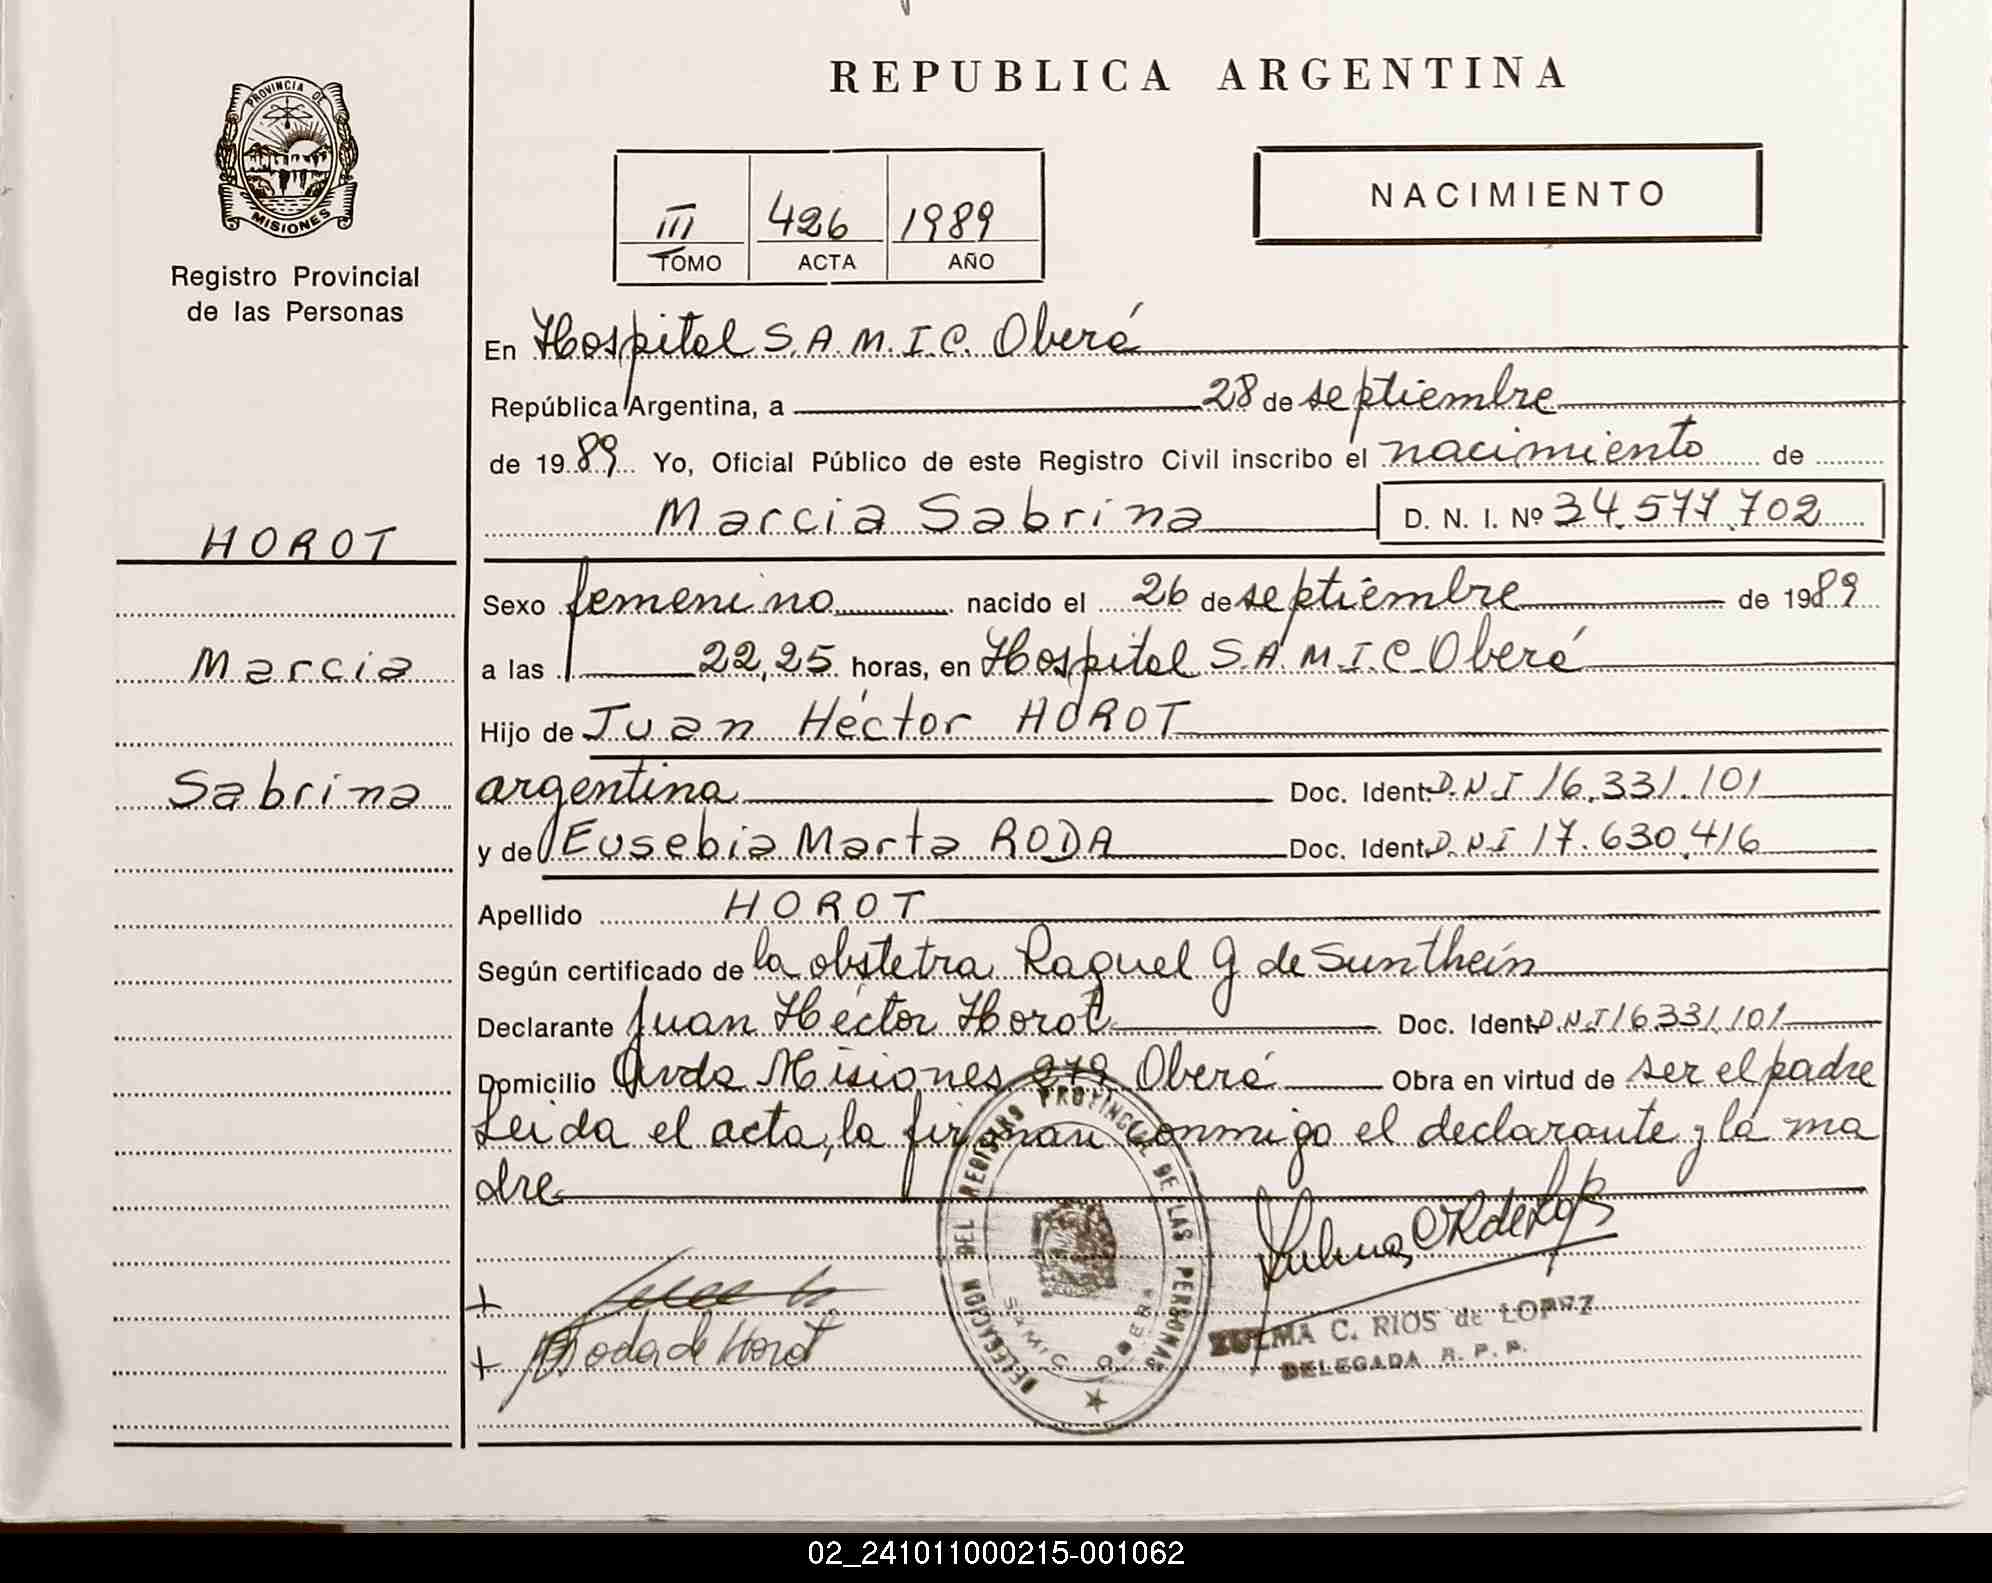 REPUBLICA ARGENTINA
PROVINCIA DE
MISIONES
Registro Provincial
de las Personas
NACIMIENTO
III 426 1989
TOMO ACTA AÑO
En Hospital S.A.M.I.C. Oberá
República Argentina, a 28 de septiembre
de 1989 Yo, Oficial Público de este Registro Civil inscribo el nacimiento de
Marcia Sabrina D. N. I. Nº 34.577.702
HOROT
Marcia
Sabrina
Sexo femenino nacido el 26 de septiembre de 1989
a las 22,25 horas, en Hospital S.A.M.I.C Oberá
Hijo de Juan Héctor HOROT
argentina Doc. Ident. D.N.I 16.331.101
y de Eusebia Marta RODA Doc. Ident. D.N.I 17.630.416
Apellido HOROT
Según certificado de la obstetra Raquel G de Sunthein
Declarante Juan Héctor Horot Doc. Ident. D.N.I 16.331.101
Domicilio Avda Misiones 279 Oberá Obra en virtud de ser el padre
Leida el acta, la firman conmigo el declarante y la ma
dre
Roda de Horot
DELEGACION DEL REGISTRO PROVINCIAL DE LAS PERSONAS
SAMIC OBERA
ZULMA C. RIOS de LOPEZ
DELEGADA R. P. P.
02_241011000215-001062